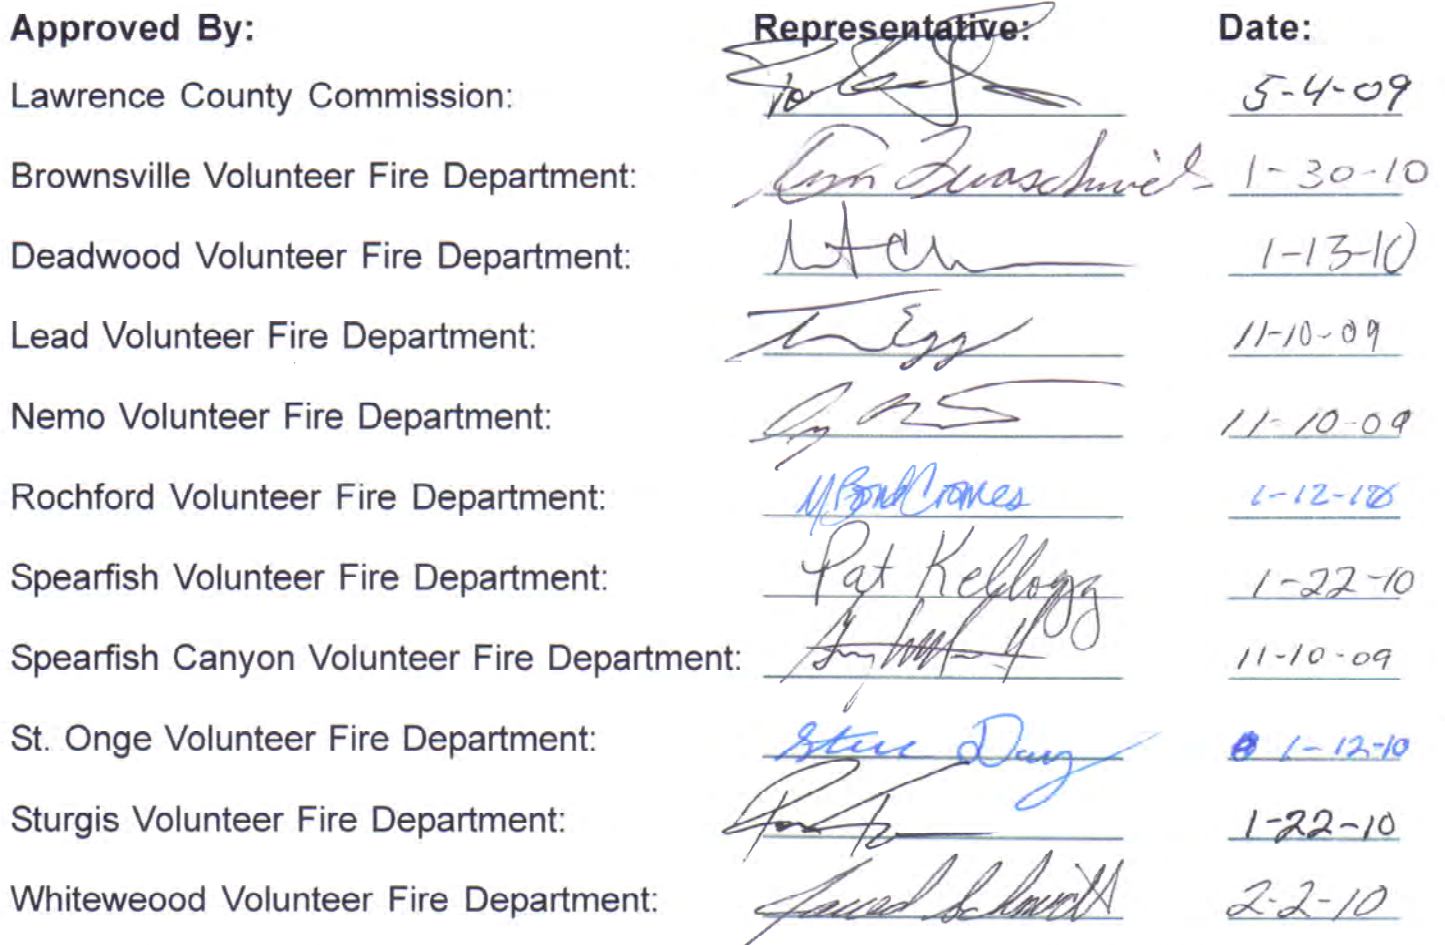 Approved By: Representative: Date:
Lawrence County Commission: 5-4-09
Brownsville Volunteer Fire Department: 1-30-10
Deadwood Volunteer Fire Department: 1-13-10
Lead Volunteer Fire Department: 11-10-09
Nemo Volunteer Fire Department: 11-10-09
Rochford Volunteer Fire Department: 1-12-10
Spearfish Volunteer Fire Department: Pat Kellogg 1-22-10
Spearfish Canyon Volunteer Fire Department: 11-10-09
St. Onge Volunteer Fire Department: Steve 1-12-10
Sturgis Volunteer Fire Department: 1-22-10
Whiteweood Volunteer Fire Department: Schmidt 2-2-10